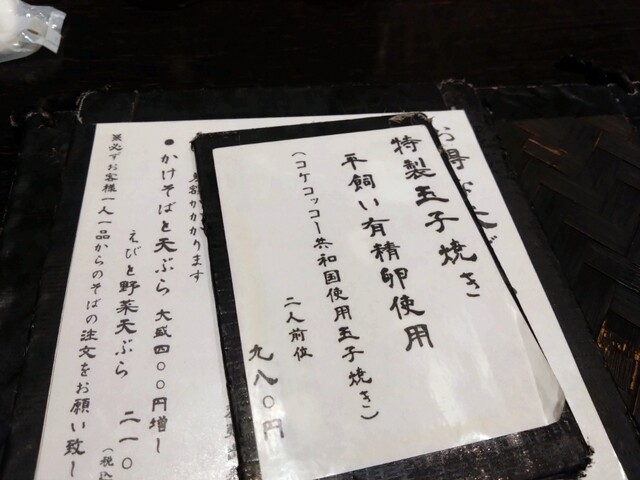 特製玉子焼き
平飼い有精卵使用
(コケコッコー共和国使用玉子焼き)
二人前位
九八〇円
お得な
かかります
●かけそばと天ぷら 大盛四〇〇円増し
えびと野菜天ぷら 二一〇
(税込
※必ずお客様一人一品からのそばの注文をお願い致し